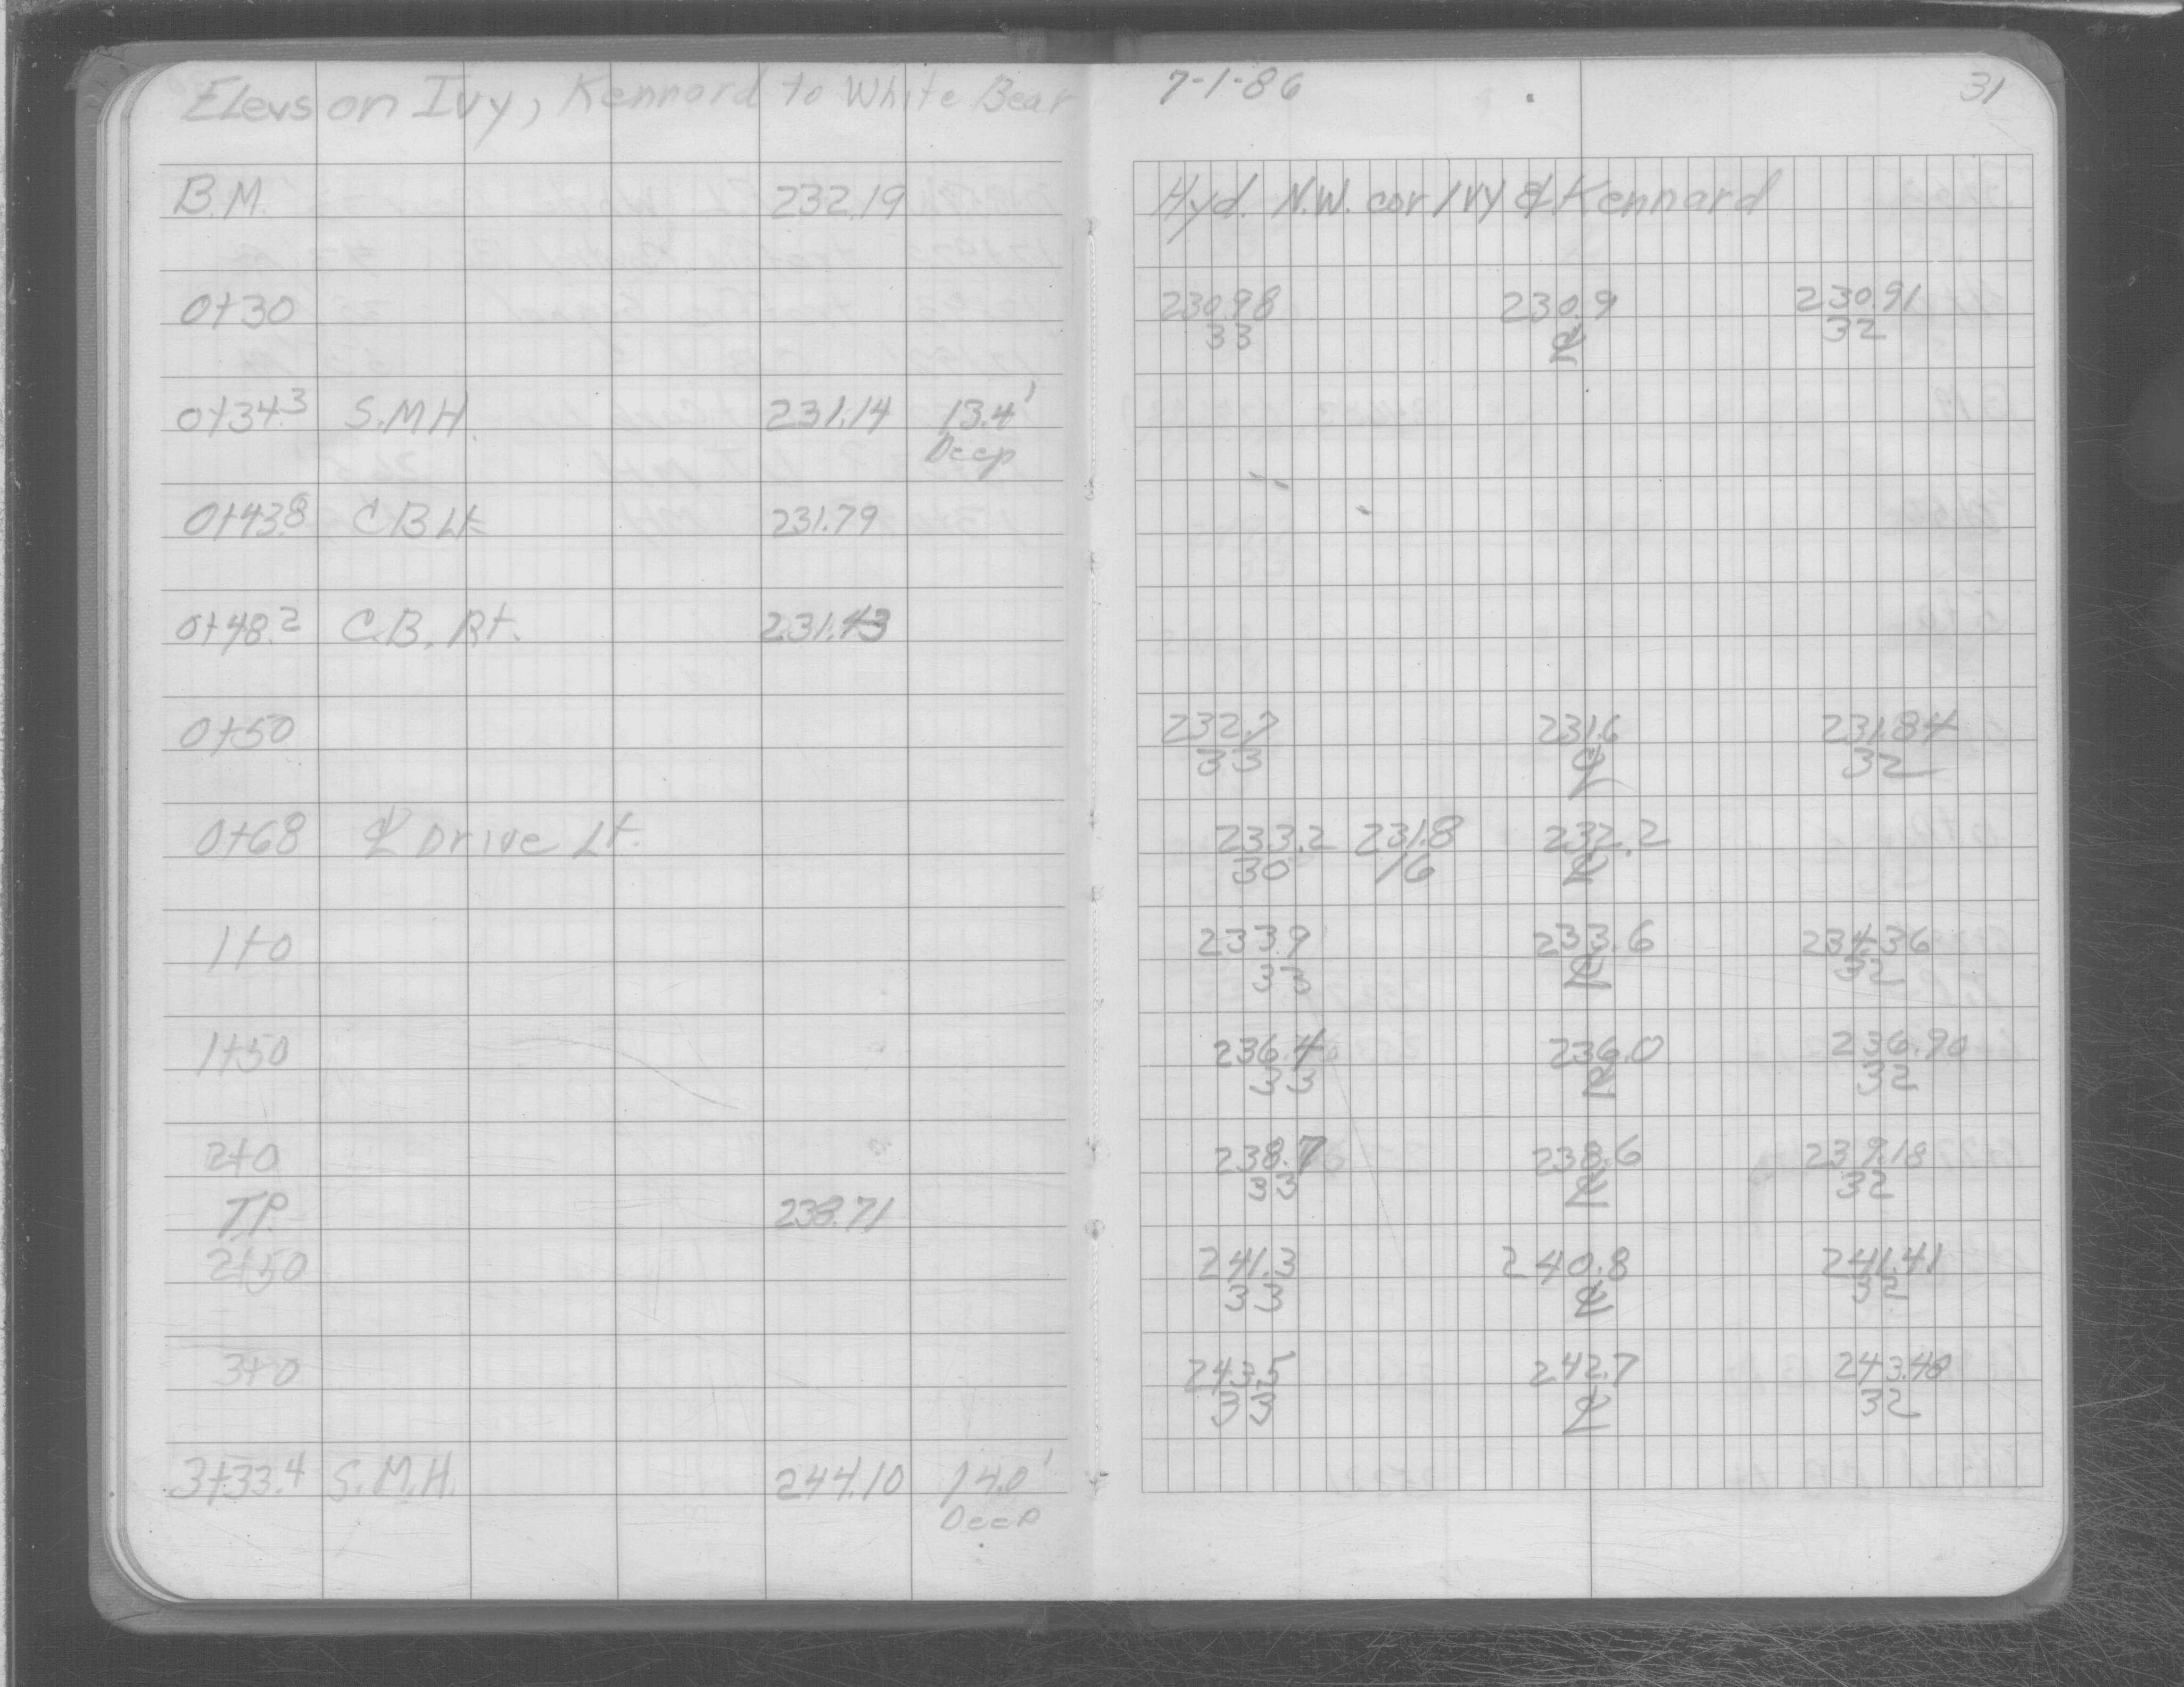 Elevs on Ivy, Kennard to White Bear 7-1-86 31
B.M. 232.19 Hyd. N.W. cor Ivy & Kennard
0+30 230.98 230.9 230.91
33 ℄ 32
0+34.3 S.M.H. 231.14 13.4'
Deep
0+43.8 C B Lt 231.79
0+48.2 C.B. Rt. 231.43
0+50 232.7 231.6 231.84
33 ℄ 32
0+68 ℄ Drive Lt. 233.2 231.8 232.2
30 16 ℄
1+0 233.9 233.6 234.36
33 ℄ 32
1+50 236.4 236.0 236.90
33 ℄ 32
2+0 238.7 238.6 239.18
33 ℄ 32
T.P. 238.71
2+50 241.3 240.8 241.41
33 ℄ 32
3+0 243.5 242.7 243.48
33 ℄ 32
3+33.4 S.M.H. 244.10 14.0'
Deep